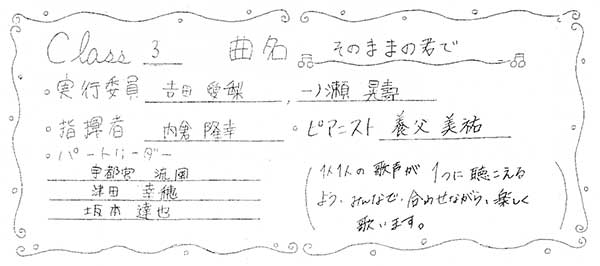 Class 3 曲名 そのままの君で
・実行委員 吉田 愛梨 , 一ノ瀬 晃壽
・指揮者 内倉 隆幸 ・ピアニスト 養父 美祐
・パートリーダー
宇都宮 流風
津田 幸穂
坂本 達也
(1人1人の歌声が1つに聴こえる
よう、みんなで、合わせながら、楽しく
歌います。)